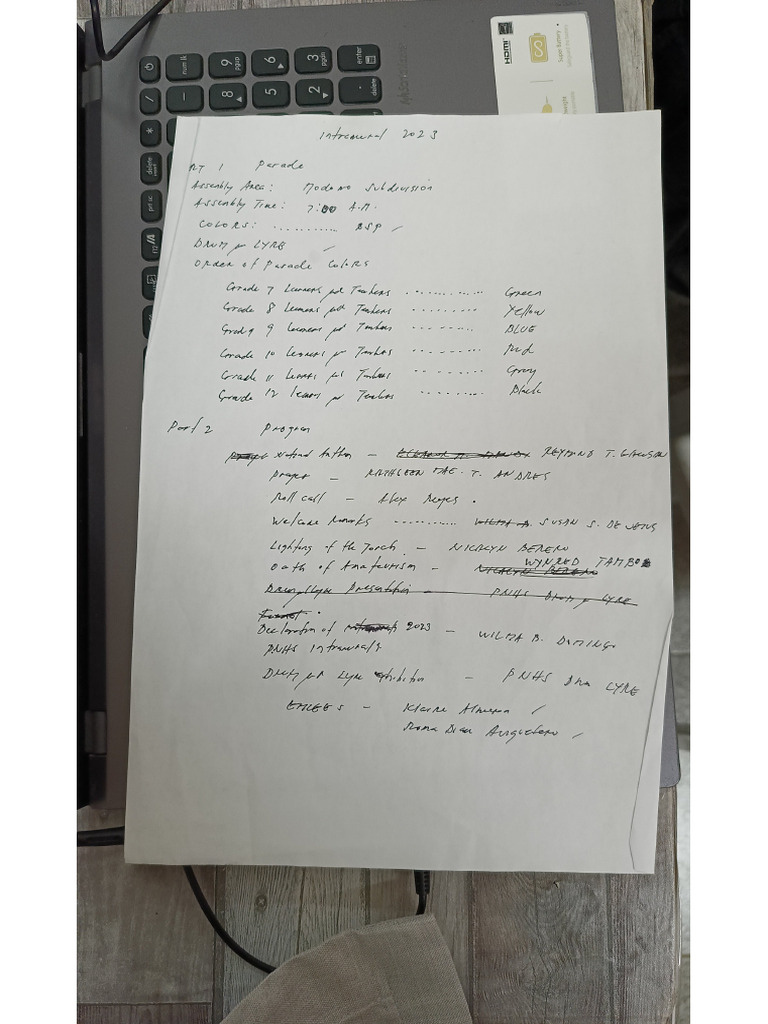 HDMI
Super Battery
num lk
9 pgup
6
3 pgdn
enter
/
-
8
5
2
.
delete
*
delete
prt sc
Intramural 2023
PRT 1 Parade
Assembly Area: Modomo Subdivision
Assembly Time: 7:00 A.M.
COLORS: ........... BSP /
DRUM & LYRE /
Order of Parade Colors
Grade 7 Learners and Teachers ............. Green
Grade 8 Learners and Teachers ......... Yellow
Grade 9 Learners and Teachers ......... BLUE
Grade 10 Learners and Teachers ......... Red
Grade 11 Learners and Teachers ......... Gray
Grade 12 Learners and Teachers ......... Black
Part 2 Program
National Anthem - REYMUND T.
Prayer - KATHLEEN MAE. T. ANDRES
Roll call - Alex Reyes .
Welcome Remarks ........... SUSAN S. DE JESUS
Lighting of the Torch - NICALYN BERENO
Oath of Amateurism - WYNRED TAMBO
Drum & Lyre Presentation - PNHS Drum & LYRE
Declaration of 2023 - WILMA B. DOMINGO
PNHS Intramurals
Drum and Lyre Exhibition - PNHS Drum LYRE
EMCEES - Klaire /
Diane /